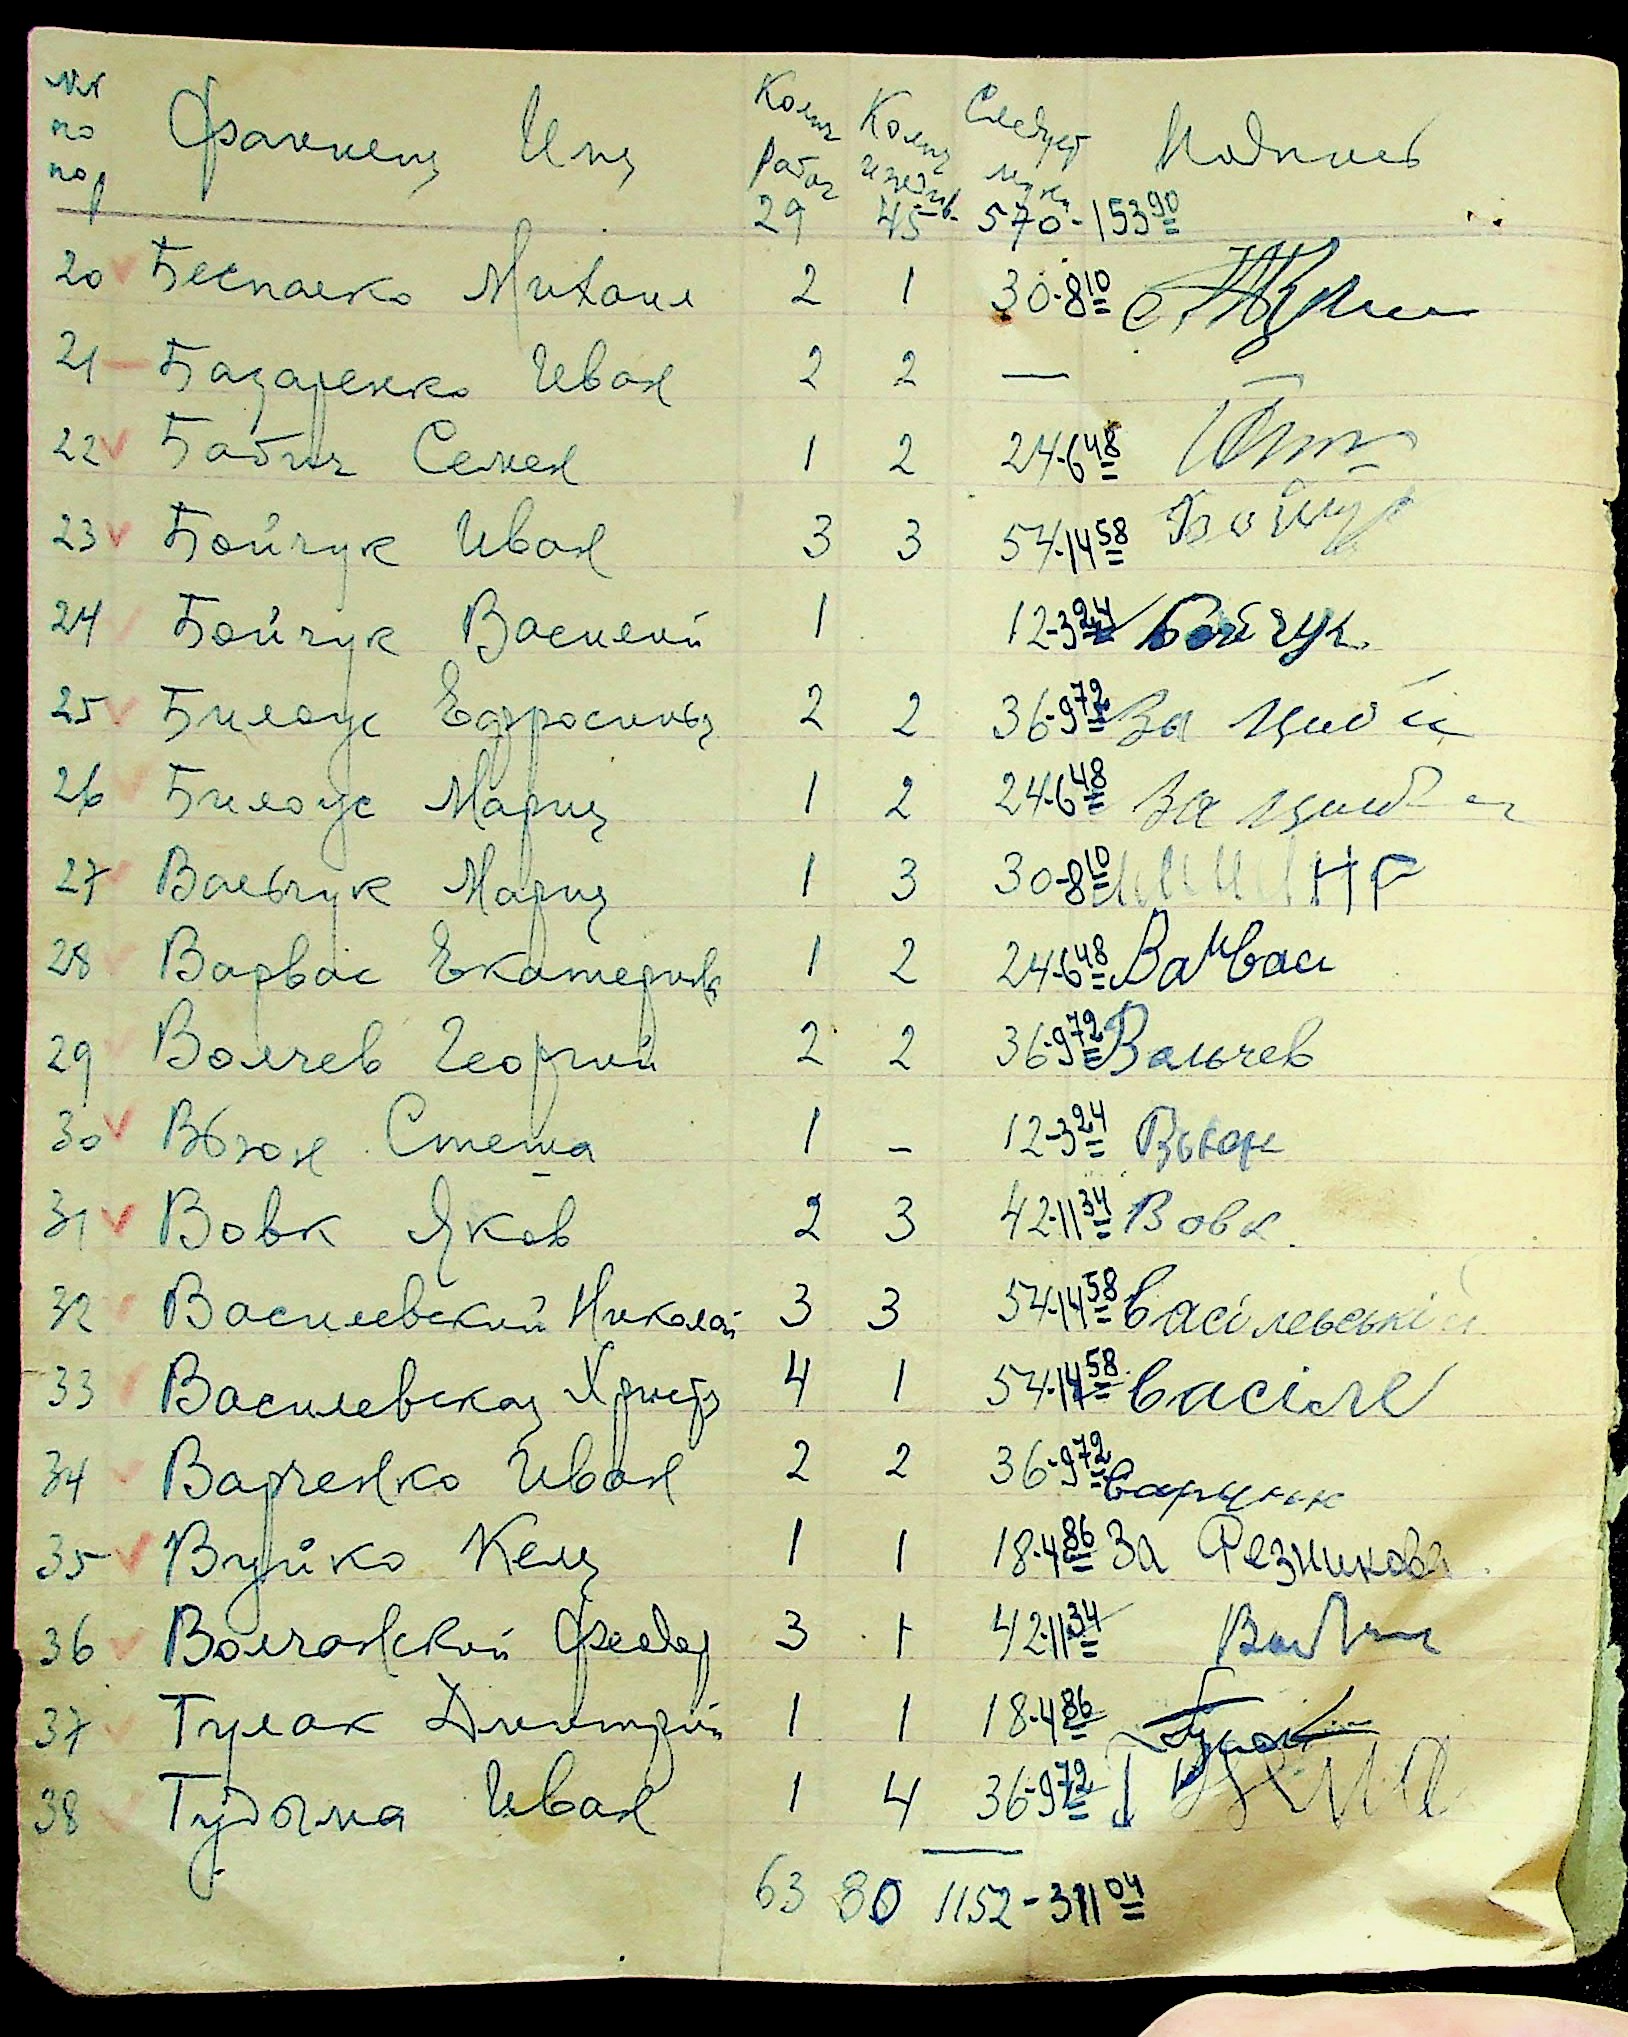 №№ по пор Фамилия Имя Колич Работ Колич иждив. Следует муки Подпись
29 45 570-153 90
20 Беспалко Михаил 2 1 30-8 10
21 Базаренко Иван 2 2 —
22 Бабич Семен 1 2 24-6 48
23 Бойчук Иван 3 3 54-14 58 Бойчук
24 Бойчук Василий 1 12-3 24 Бойчук
25 Билоус Ефросинья 2 2 36-9 72 За
26 Билоус Мария 1 2 24-6 48 За
27 Вальчук Мария 1 3 30-8 10 НГ
28 Варвас Екатерин 1 2 24-6 48 Варвас
29 Волчев Георгий 2 2 36-9 72 Вольчев
30 Вьюн Стеша 1 - 12-3 24 Вьюн
31 Вовк Яков 2 3 42-11 34 Вовк
32 Василевский Николай 3 3 54-14 58 Васілевській
33 Василевская Христя 4 1 54-14 58 Васіле
34 Варченко Иван 2 2 36-9 72
35 Вуйко Келя 1 1 18-4 86 За Резникова
36 Волчанский Федор 3 1 42-11 34
37 Гулак Дмитрий 1 1 18-4 86 Гулак
38 Гудыма Иван 1 4 36-9 72
63 80 1152-311 04